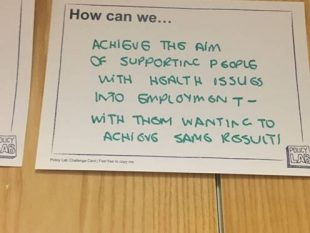 How can we...
ACHIEVE THE AIM
OF SUPPORTING PEOPLE
WITH HEALTH ISSUES
INTO EMPLOYMENT -
WITH THEM WANTING TO
ACHIEVE SAME RESULT!
Policy Lab Challenge Card | Feel free to copy me
POLICY
LAB
POLICY
LAB